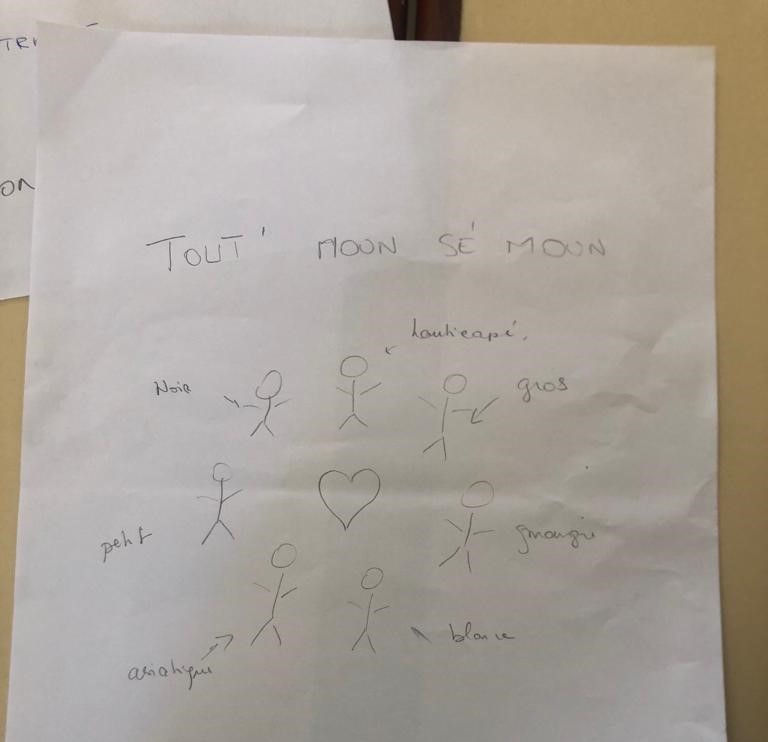 TRI
ON
TOUT' MOUN SÉ MOUN
handicapé.
Noir
gros
petit
blanc
asiatique